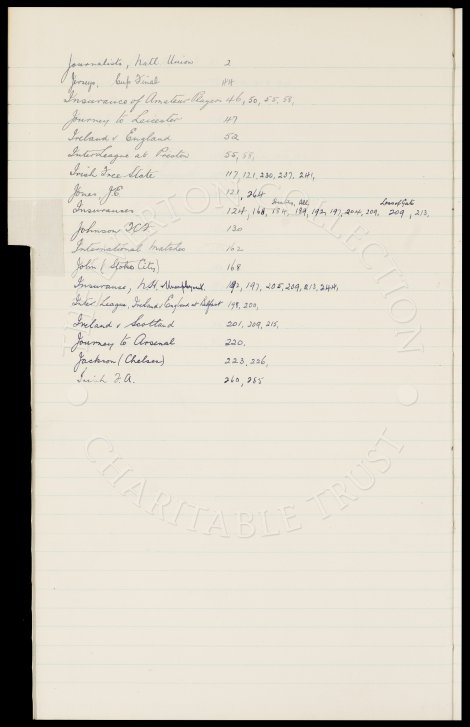 Journalists, Natl. Union 2
Jerseys, Cup Final 44
Insurance of Amateur Players 46, 50, 55, 58,
Journey to Leicester 47
Ireland v England 52
Inter League at Preston 55, 58,
Irish Free State 117, 121, 230, 237, 241,
Jones, J.E 121, 264
Loss of Gate
Insurances 124, 168, 184, 189, 192, 197, 204, 209, 209, 213,
Johnson 130
International Matches 162
John (Stoke City) 168
Insurance, N.H. & Unemployed. 192, 197, 205, 209, 213, 244,
Inter/League, Ireland v England at Belfast 198, 200,
Ireland v Scotland 201, 209, 215,
Journey to Arsenal 220,
Jackson (Chelsea) 223, 226,
Irish F.A. 260, 285
THE COLLECTION
CHARITABLE TRUST